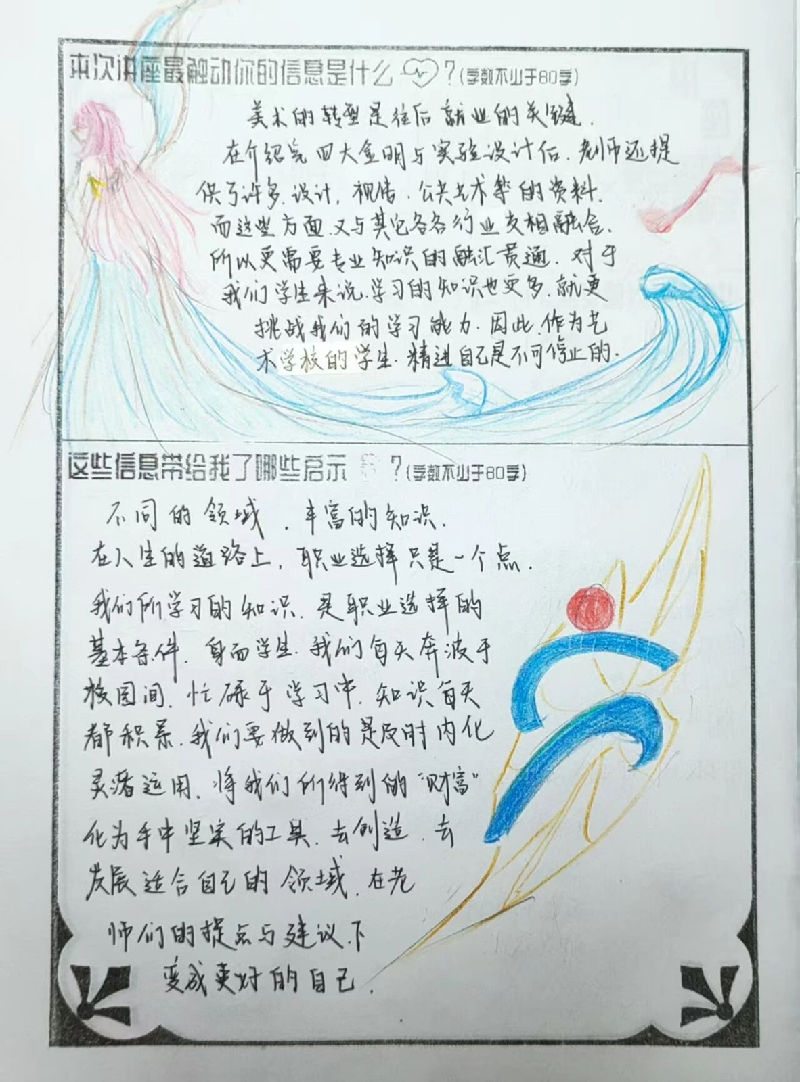 本次讲座最触动你的信息是什么?(字数不少于80字)
美术的转型是往后就业的关键.
在介绍完四大金明与实验设计后.老师还提
供了许多.设计,视传.公共艺术等的资料.
而这些方面.又与其它各各行业交相融合.
所以更需要专业知识的融汇贯通.对于
我们学生来说.学习的知识也更多.就更
挑战我们的学习能力.因此.作为艺
术学校的学生.精进自己是不可停止的.
这些信息带给我了哪些启示?(字数不少于80字)
不同的领域.丰富的知识.
在人生的道路上,职业选择只是一个点.
我们所学习的知识.是职业选择的
基本条件.身而学生.我们每天奔波于
校园间.忙碌于学习中.知识每天
都积累.我们要做到的是及时内化
灵活运用.将我们所得到的"财富"
化为手中坚实的工具.去创造.去
发展适合自己的领域.在老
师们的提点与建议下
变成更好的自己.